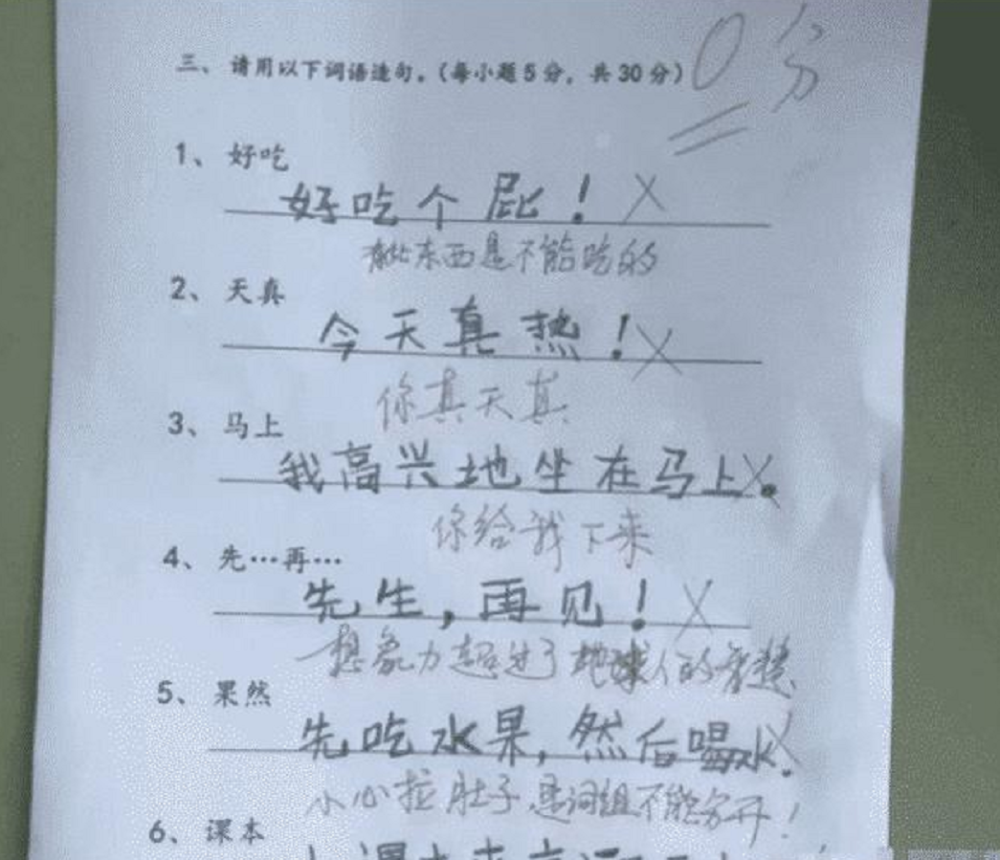 三、请用以下词语造句。(每小题5分，共30分) 0分
1、好吃
好吃个屁！ X
有些东西是不能吃的
2、天真
今天真热！ X
你真天真
3、马上
我高兴地坐在马上。 X
你给我下来
4、先…再…
先生，再见！ X
想象力超过了地球人的
5、果然
先吃水果，然后喝水. X
小心拉肚子 是词组不能分开！
6、课本